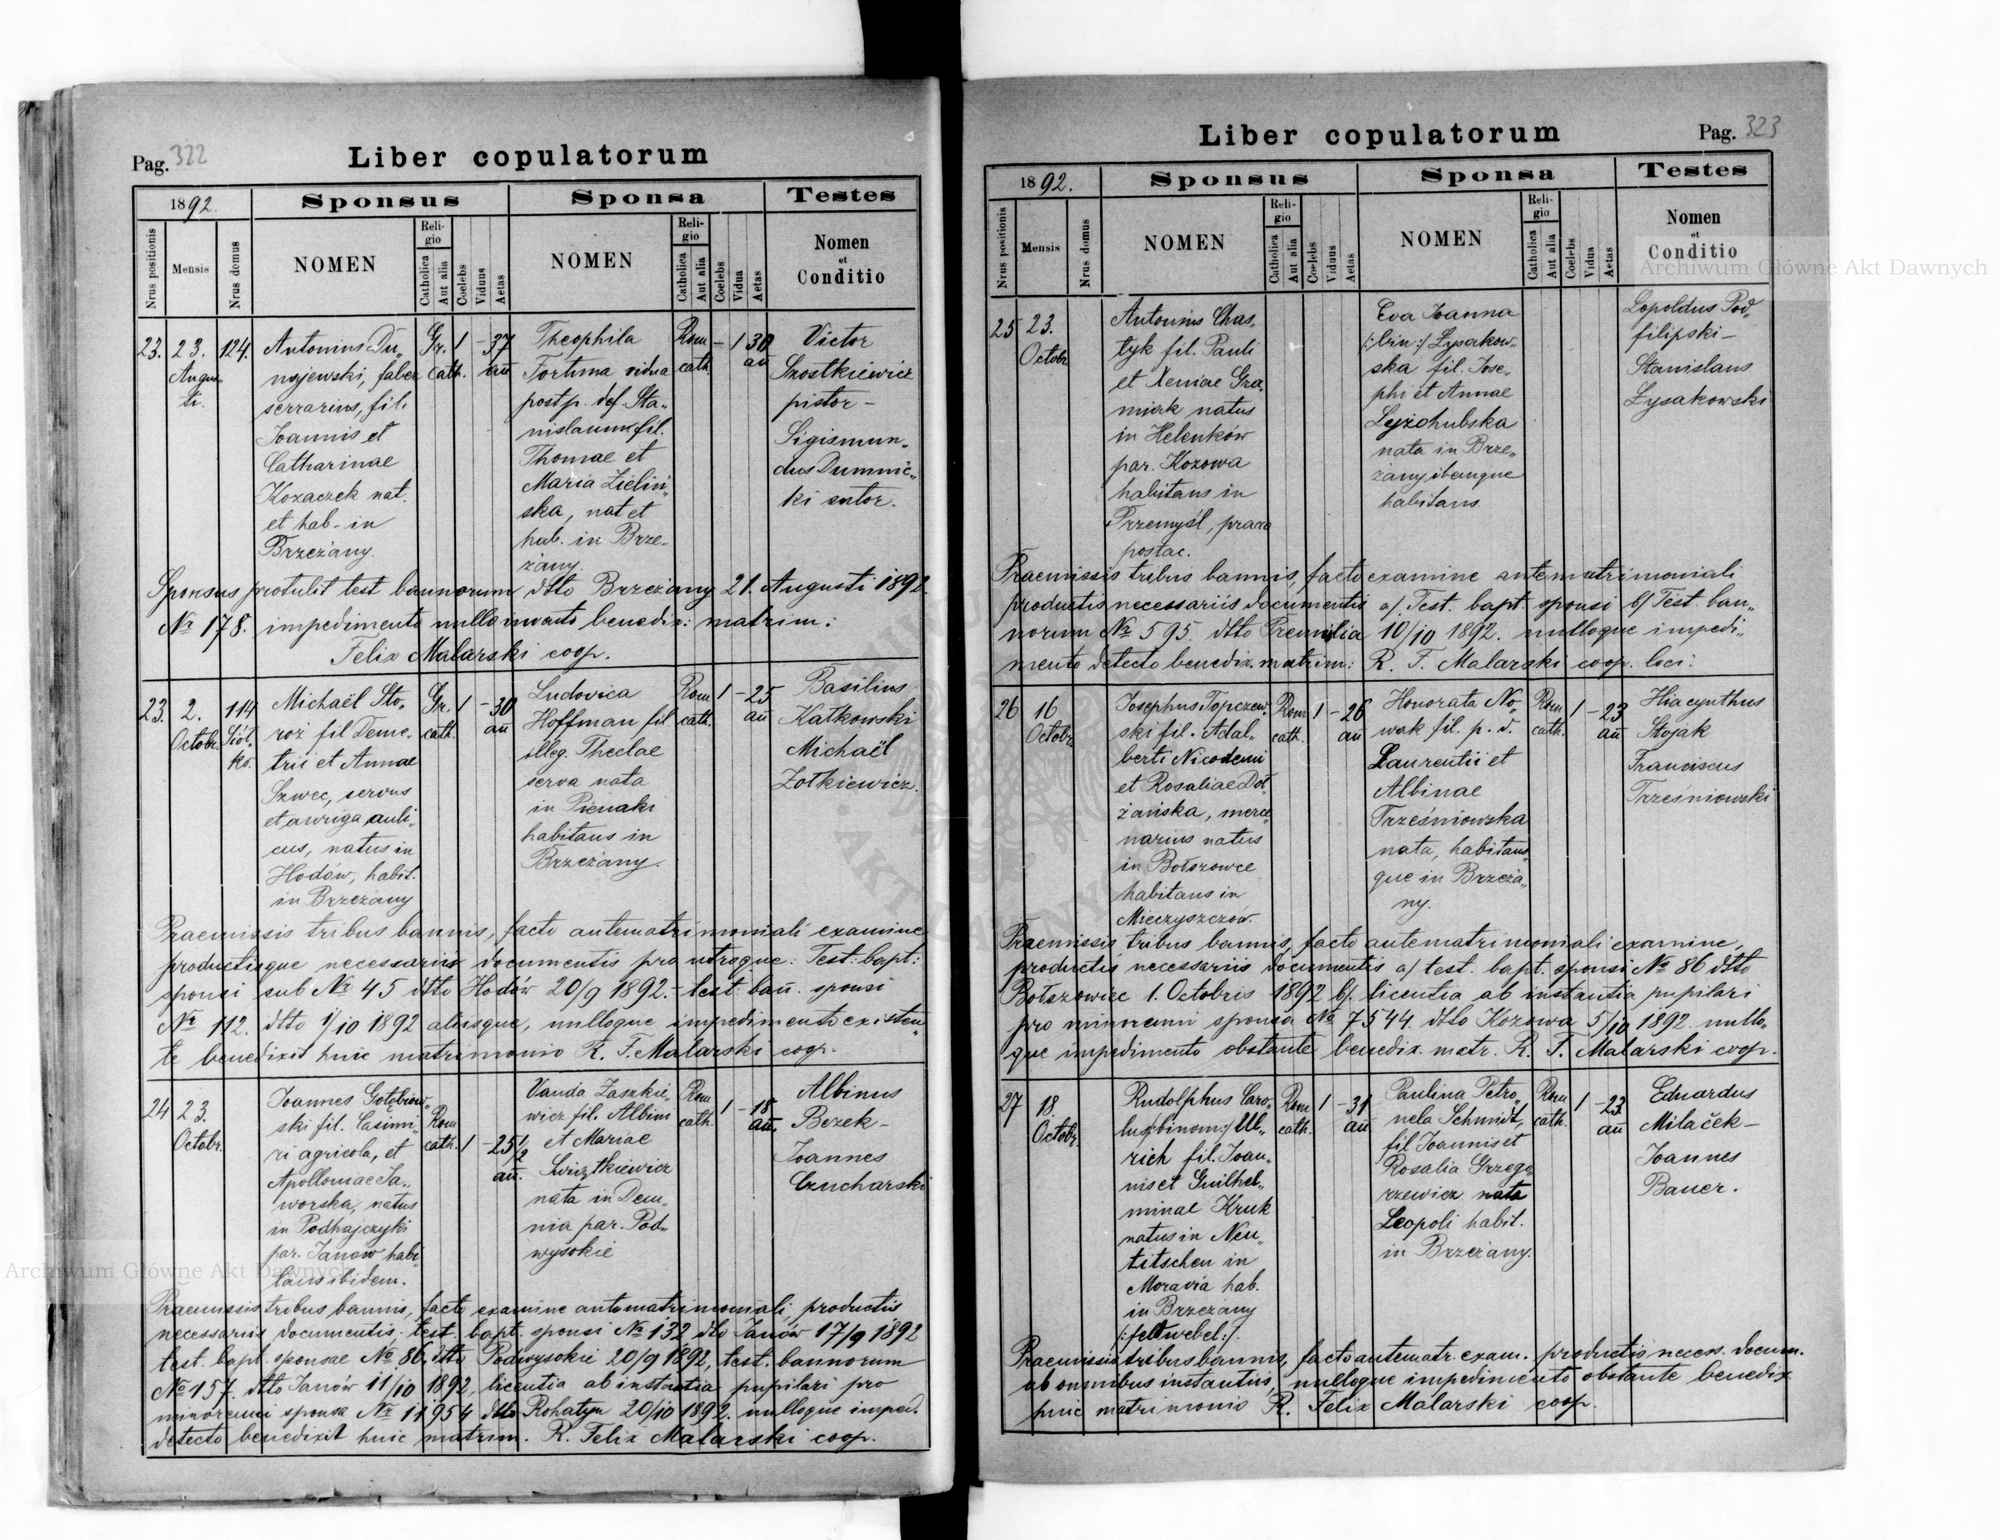 Pag. 322
Liber copulatorum
1892.
Sponsus
Sponsa
Testes
Nrus positionis
Mensis
Nrus domus
NOMEN
Religio
Catholica
Aut alia
Coelebs
Viduus
Aetas
NOMEN
Religio
Catholica
Aut alia
Coelebs
Vidua
Aetas
Nomen
et
Conditio
23.
23.
Augus„
ti.
124.
Antonius Du„
najewski, faber
serrarius, fil.
Joannis et
Catharinae
Kozaczek nat.
et hab. in
Brzeżany.
Gr.
cath.
1
–
37
añ
Theophila
Fortuna vidua
post p. def. Sta„
nislaum fil.
Thomae et
Maria Zieliń„
ska, nat et
hab. in Brze„
żany.
Rom
cath
–
1
30
añ
Victor
Szostkiewicz
pistor –
Sigismun„
dus Dumnic„
ki sutor.
Sponsus protulit test bannorum dtto Brzeżany 21. Augusti 1892.
No 178. impedimento nullo invento benedix: matrim:
Felix Malarski coop.
23.
2.
Octobr.
114
Siół„
ko.
Michaël Sto„
roż fil Deme„
trii et Annae
Szwec, servus
et auriga auli„
cus, natus in
Hodów, habit.
in Brzeżany
Gr.
cath.
1
–
30
añ
Ludovica
Hoffman fil
illeg. Theclae
serva nata
in Pieniaki
habitans in
Brzeżany.
Rom
cath.
1
–
25
añ
Basilius
Katkowski
Michaël
Zotkiewicz.
Praemissis tribus bannis, facto antematrimoniali examine
productisque necessariis documentis pro utroque: Test: bapt:
sponsi sub No 45 dtto Hodów 20/9 1892. – test. bañ. sponsi
No 112. dtto 1/10 1892 aliisque, nulloque impedimento existen„
te benedixit huic matrimonio R. F. Malarski coop.
24
23.
Octobr.
Joannes Gołębiow„
ski fil. Casimi„
ri agricola, et
Apolloniae Ja„
worska, natus
in Podhajczyki
par. Janów habi
tans ibidem.
Rom
cath.
1
–
25 1/2
añ.
Vanda Zaszkie„
wicz fil. Albini
et Mariae
nata in Dem„
nia par. Pod„
wysokie
Rom
cath.
1
–
18
añ.
Albinus
Bezek –
Joannes
Czucharski
Praemissis tribus bannis, facto examine antematrimoniali, productis
necessariis documentis; test. bapt. sponsi No 132 dto Janów 17/9 1892
test. bapt. sponsae No 86. dtto Podwysokie 20/9 1892, test. bannorum
No 157. dtto Janów 11/10 1892, licentia ab instantia pupilari pro
minorenni sponsa No 11954 dtto Rohatyn 20/10 1892. nulloque imped.
detecto benedixit huic matrim. R. Felix Malarski coop.
Liber copulatorum
Pag. 323
1892.
Sponsus
Sponsa
Testes
Nrus positionis
Mensis
Nrus domus
NOMEN
Religio
Catholica
Aut alia
Coelebs
Viduus
Aetas
NOMEN
Religio
Catholica
Aut alia
Coelebs
Vidua
Aetas
Nomen
et
Conditio
25
23.
Octobr
Antonius Chas„
tyk fil. Pauli
et Xeniae Gra„
miak natus
in Helenków
par. Kozowa
habitans in
Przemyśl,
Eva Joanna
/:bin:/ Łysakow„
ska fil. Jose„
phi et Annae
Łyżohubska
nata in Brze„
żany ibemque
habitans
Leopoldus Pod„
filipski –
Stanislaus
Łysakowski
Praemissis tribus bannis, facto examine antematrimoniali
productis necessariis documentis a/. Test. bapt. sponsi b/ Test. ban„
norum No 595. dtto Premislia 10/10 1892. nulloque impedi„
mento detecto benedix. matrim: R. F. Malarski coop. loci.
26
16
Octobr.
Josephus Topczew„
ski fil. Adal„
berti Nicodemi
et Rosaliae Doł„
żańska, merce„
narius natus
in Bołszowce
habitans in
Mieczyszczów.
Rom
cath.
1
–
26
añ
Honorata No„
wak fil. p. d.
Laurentii et
Albinae
Trześniowska
nata, habitans„
que in Brzeża„
ny.
Rom
cath.
1
–
23
añ
Hiacynthus
Stojak
Franciscus
Trześniowski
Praemissis tribus bannis, facto antematrimoniali examine,
productis necessariis documentis a/ test. bapt. sponsi No 86 dtto
Bołszowiec 1. Octobris 1892 b/. licentia ab instantia pupilari
pro minorenni sponsa No 7544. dtto Kozowa 5/10 1892. nullo„
que impedimento obstante benedix. matr. R. F. Malarski coop.
27
18.
Octobr.
Rudolphus Caro„
lus /:binom:/ Ul„
rich fil. Joan„
nis et Guilhel„
minae Kruk
natus in Neu„
titschen in
Moravia hab.
in Brzeżany
/:feltwebel:/.
Rom
cath.
1
–
31
añ
Paulina Petro„
nela Schmidt,
fil Joannis et
Rosalia Grzego„
rzewicz nata
Leopoli habit.
in Brzeżany.
Rom
cath.
1
–
23
añ
Eduardus
Milaček –
Joannes
Bauer.
Praemissis tribus bannis, facto antematr. exam. productis necess. docum.
ab omnibus instantiis, nulloque impedimento obstante benedix
huic matrimonio R. Felix Malarski coop.
Archiwum Główne Akt Dawnych
Archiwum Główne Akt Dawnych